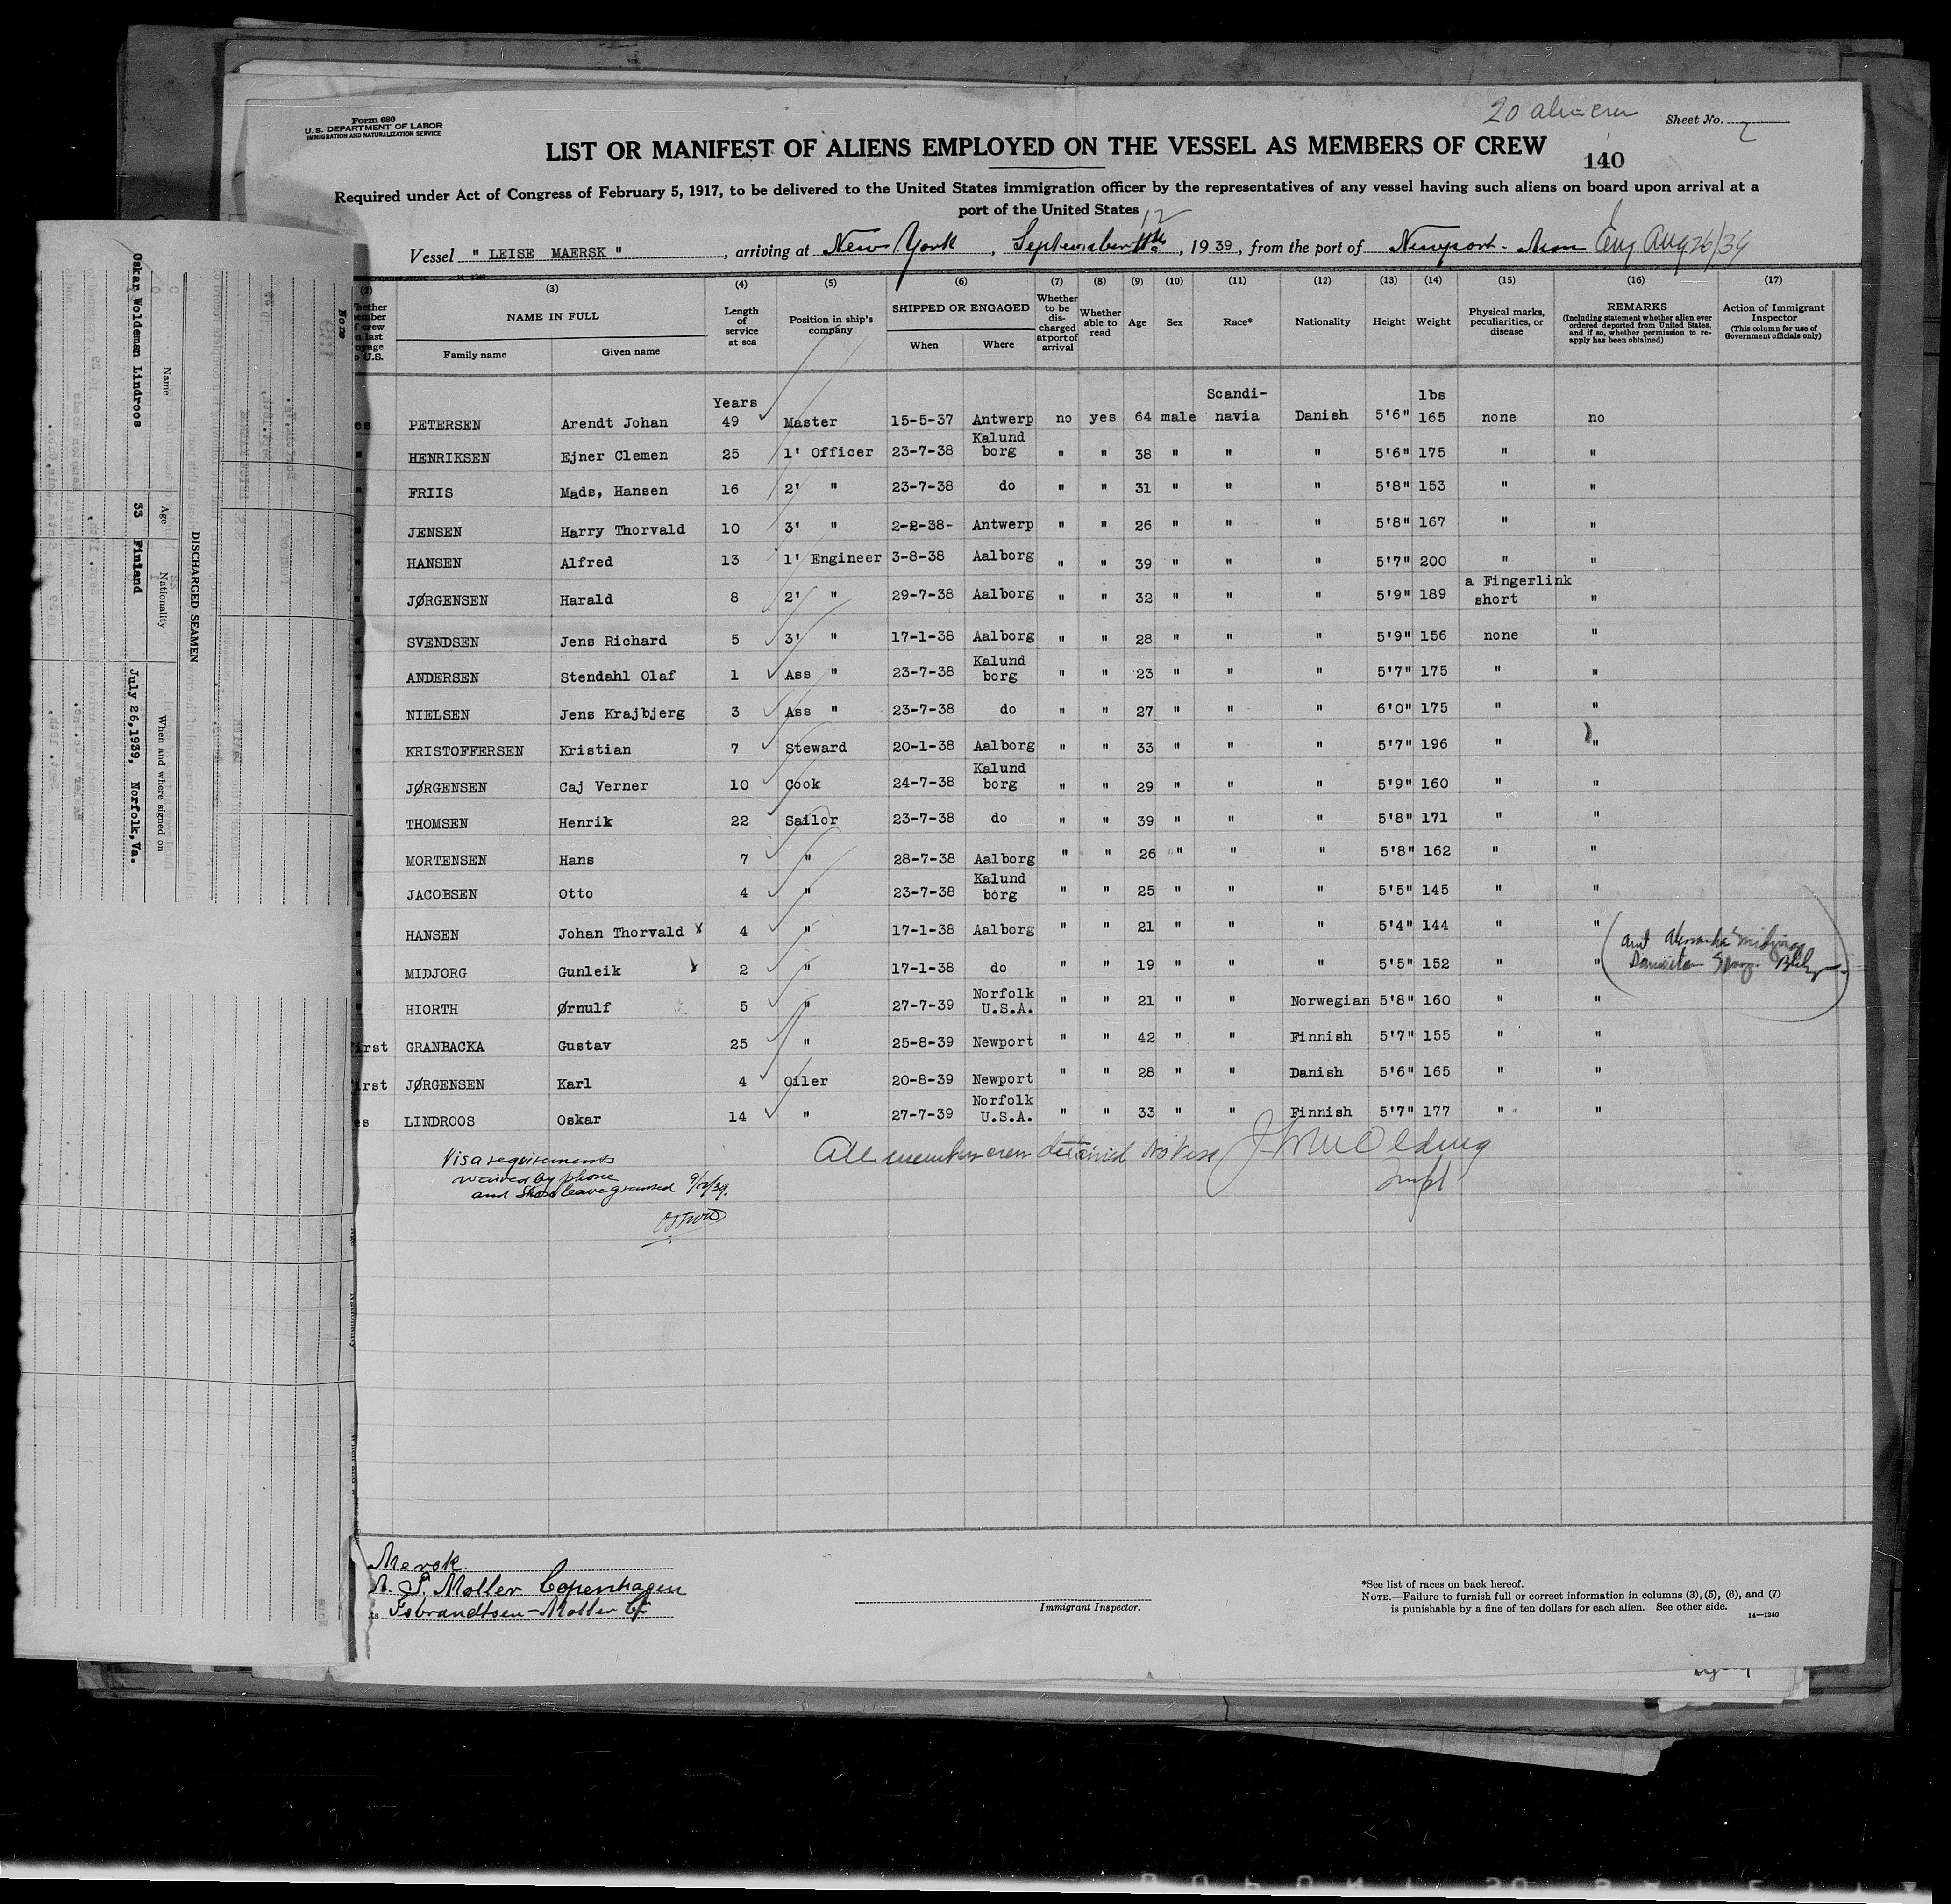 Form 680
U.S. DEPARTMENT OF LABOR
IMMIGRATION AND NATURALIZATION SERVICE
20 alien crew
Sheet No. 2
LIST OR MANIFEST OF ALIENS EMPLOYED ON THE VESSEL AS MEMBERS OF CREW
140
Required under Act of Congress of February 5, 1917, to be delivered to the United States immigration officer by the representatives of any vessel having such aliens on board upon arrival at a
port of the United States
12
Vessel " LEISE MAERSK ", arriving at New York, September 11th, 1939, from the port of Newport - Mon Eng Aug 26/39
(2) (3) (4) (5) (6) (7) (8) (9) (10) (11) (12) (13) (14) (15) (16) (17)
NAME IN FULL
Family name Given name
Length of service at sea
Position in ship's company
SHIPPED OR ENGAGED
When Where
Whether to be discharged at port of arrival
Whether able to read
Age
Sex
Race*
Nationality
Height
Weight
Physical marks, peculiarities, or disease
REMARKS
(Including statement whether alien ever ordered deported from United States, and if so, whether permission to reapply has been obtained)
Action of Immigrant Inspector
(This column for use of Government officials only)
es PETERSEN Arendt Johan Years 49 Master 15-5-37 Antwerp no yes 64 male Scandi-navia Danish 5'6" lbs 165 none no
" HENRIKSEN Ejner Clemen 25 1' Officer 23-7-38 Kalund borg " " 38 " " " 5'6" 175 " "
" FRIIS Mads, Hansen 16 2' " 23-7-38 do " " 31 " " " 5'8" 153 " "
" JENSEN Harry Thorvald 10 3' " 2-2-38- Antwerp " " 26 " " " 5'8" 167 " "
" HANSEN Alfred 13 1' Engineer 3-8-38 Aalborg " " 39 " " " 5'7" 200 " "
" JØRGENSEN Harald 8 2' " 29-7-38 Aalborg " " 32 " " " 5'9" 189 a Fingerlink short "
" SVENDSEN Jens Richard 5 3' " 17-1-38 Aalborg " " 28 " " " 5'9" 156 none "
" ANDERSEN Stendahl Olaf 1 Ass " 23-7-38 Kalund borg " " 23 " " " 5'7" 175 " "
" NIELSEN Jens Krajbjerg 3 Ass " 23-7-38 do " " 27 " " " 6'0" 175 " "
" KRISTOFFERSEN Kristian 7 Steward 20-1-38 Aalborg " " 33 " " " 5'7" 196 " "
" JØRGENSEN Caj Verner 10 Cook 24-7-38 Kalund borg " " 29 " " " 5'9" 160 " "
" THOMSEN Henrik 22 Sailor 23-7-38 do " " 39 " " " 5'8" 171 " "
" MORTENSEN Hans 7 " 28-7-38 Aalborg " " 26 " " " 5'8" 162 " "
" JACOBSEN Otto 4 " 23-7-38 Kalund borg " " 25 " " " 5'5" 145 " "
" HANSEN Johan Thorvald x 4 " 17-1-38 Aalborg " " 21 " " " 5'4" 144 " "
" MIDJORG Gunleik 2 " 17-1-38 do " " 19 " " " 5'5" 152 " "
" HIORTH Ørnulf 5 " 27-7-39 Norfolk U.S.A. " " 21 " " Norwegian 5'8" 160 " "
irst GRANBACKA Gustav 25 " 25-8-39 Newport " " 42 " " Finnish 5'7" 155 " "
irst JØRGENSEN Karl 4 Oiler 20-8-39 Newport " " 28 " " Danish 5'6" 165 " "
es LINDROOS Oskar 14 " 27-7-39 Norfolk U.S.A. " " 33 " " Finnish 5'7" 177 " "
Visa requirements
waived by phone
and Shore leave granted 9/12/39.
All members crew detained No Visa
Inspt
Mersk
A. P. Moller Copenhagen
Isbrandtsen-Moller Co
Immigrant Inspector.
*See list of races on back hereof.
NOTE.—Failure to furnish full or correct information in columns (3), (5), (6), and (7)
is punishable by a fine of ten dollars for each alien. See other side.
14—1240
DISCHARGED SEAMEN
Name Age Nationality When and where signed on
Oskar Woldeman Lindroos 33 Finland July 26,1939, Norfolk,Va.